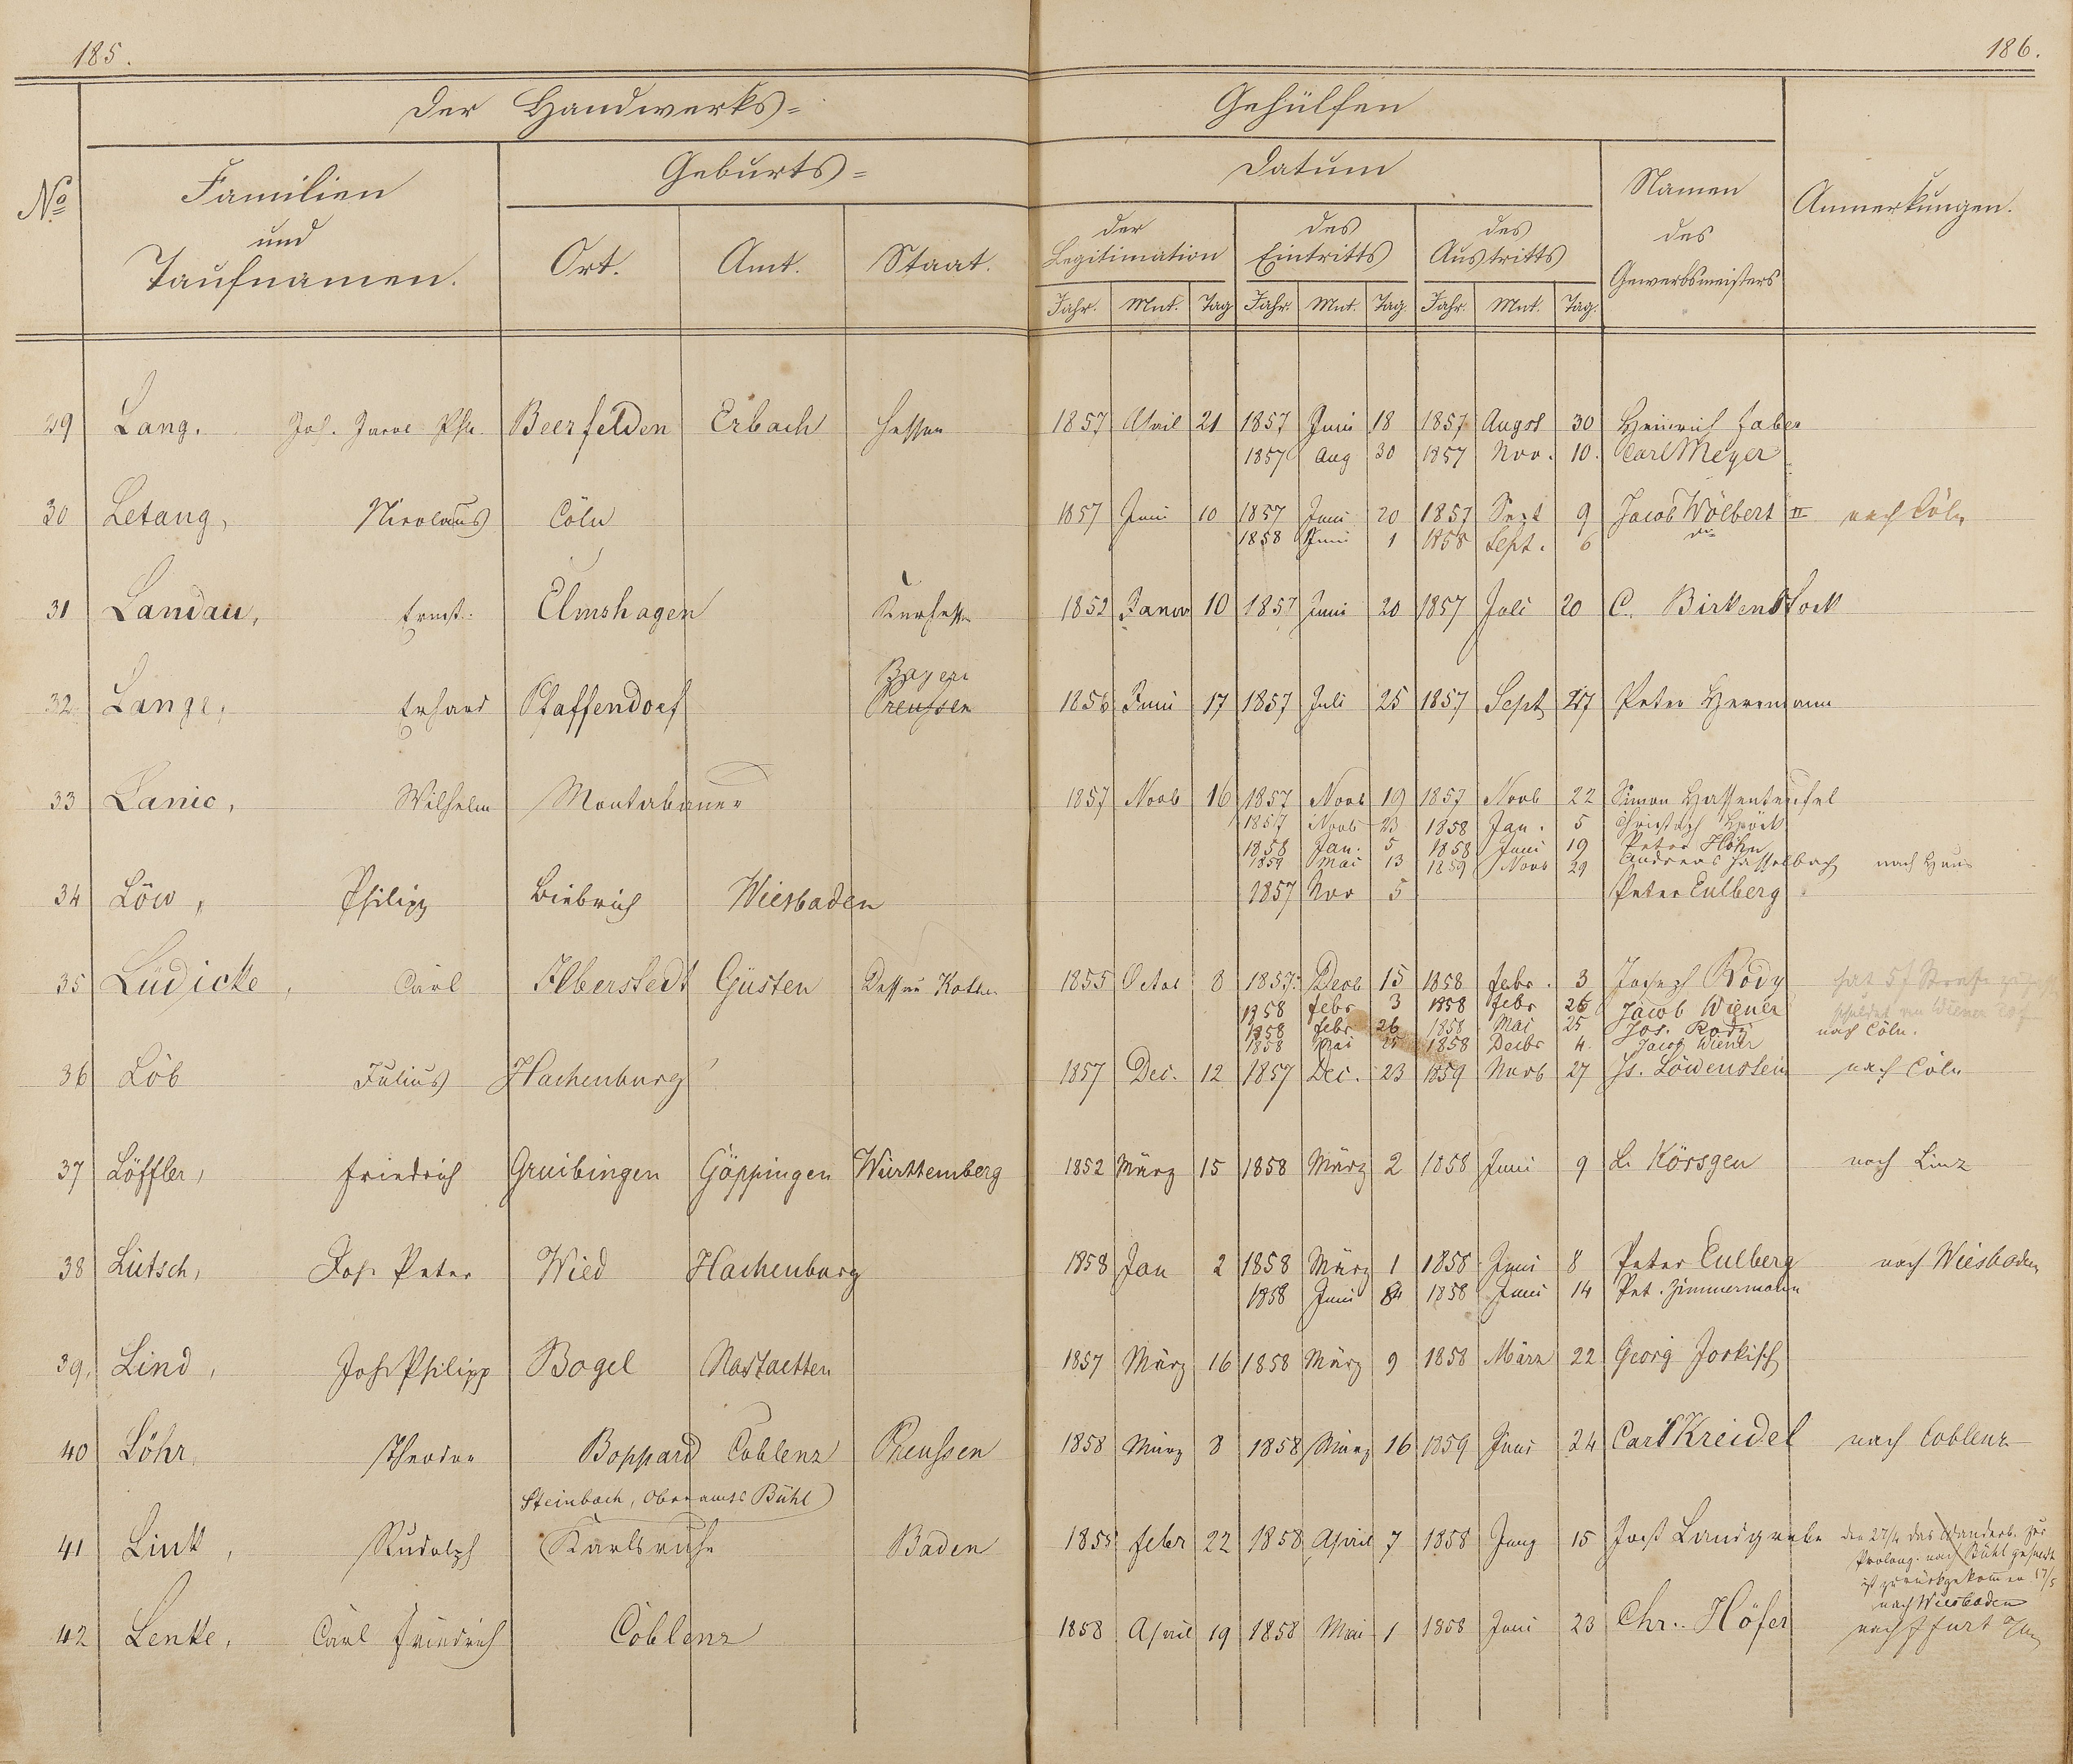 185.
186.
Der Handwerks=
Gehülfen
No
Familien
und
Taufnamen.
Geburts=
Ort.
Amt.
Staat.
Datum
der
Legitimation
des
Eintritts
des
Austritts
Jahr. Mnt. Tag Jahr. Mnt. Tag. Jahr. Mnt. Tag.
Namen
des
Gewerbsmeisters
Anmerkungen.
29 Lang. Joh. Jacob Phil. Beerfelden Erbach Hessen 1857 April 21 1857 Juni 18 1857 Augst 30 Heinrich Faber
1857 Aug 30 1857 Nov. 10. Carl Meyer
30 Letang, Nicolaus Cöln 1857 Juni 10 1857 Juni 20 1857 Sept 9 Jacob Wölbert II nach Cöln
1858 Juni 1 1858 Sept. 6
31 Landau, Ernst. Elmshagen Kurhessen 1852 Januar 10 1857 Juni 20 1857 Juli 20 C. Birkenstock
Bayern
32 Lange, Erhard Pfaffendorf Preussen 1856 Juni 17 1857 Juli 25 1857 Sept 27 Peter Herrmann
33 Lanio, Wilhelm Montabaur 1857 Novb 16 1857 Novb 19 1857 Novb 22 Simon Hassenteufel
1857 Novb 23 1858 Jan. 5 Christoph
1858 Jan. 5 1858 Juni 19 Peter Höhn
1859 Mai 13 1859 Novb 29 Andreas Hasselbach nach Haus
34 Löw, Philipp Biebrich Wiesbaden 1857 Nov 5 Peter Eulberg
35 Lüdicke, Carl Ilberstedt Güsten Dessau Köthen 1855 Octob 8 1857 Decb 15 1858 Febr. 3 Joseph Rody
1858 Febr 3 1858 Febr 26 Jacob Wiener
1858 Febr 26 1858 Mai 25 Jos. Rody nach Cöln.
1858 Mai 25 1858 Decbr 4. Jacob Wiener
36 Löb Julius Hachenburg 1857 Dec. 12 1857 Dec. 23 1859 Novb 27 Js. Löwenstein nach Cöln
37 Löffler, Friedrich Gruibingen Göppingen Württemberg 1852 März 15 1858 März 2 1858 Juni 9 L. Körsgen nach Linz
38 Lütsch, Joh. Peter Wied Hachenburg 1858 Jan 2 1858 März 1 1858 Juni 8 Peter Eulberg nach Wiesbaden
1858 Juni 8 1858 Juni 14 Pet. Zimmermann
39. Lind, Joh Philipp Bogel Nastaetten 1857 März 16 1858 März 9 1858 März 22 Georg Jorkisch
40 Löhr, Theodor Boppard Coblenz Preussen 1858 März 8 1858 März 16 1859 Juni 24 Carl Kreidel nach Coblenz
Steinbach, Oberamts Bühl
41 Link, Rudolph Karlsruhe Baden 1855 Febr 22 1858 April 7 1858 Juny 15 Jost Landgrebe den 27/4 das Wanderb. zur
Prolong. nach Bühl gesandt
ist zurückgekommen 17/5
nach Wiesbaden
42 Lenke, Carl Friedrich Coblenz 1858 April 19 1858 Mai 1 1858 Juni 23 Chr. Höfer nach Ffurt